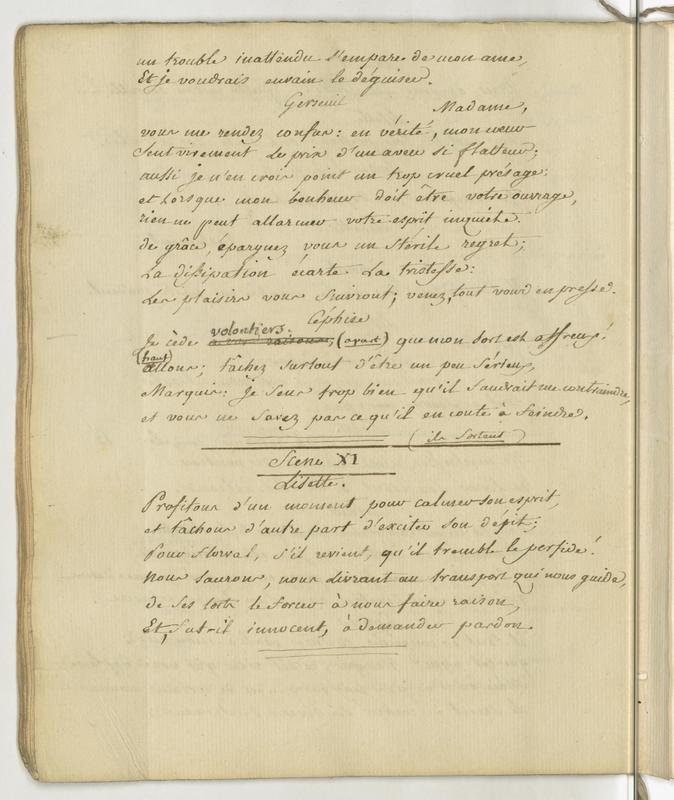 un trouble inattendu s'empare de mon ame,
Et je voudrais envain le déguiser.
Gerseuil
Madame,
vous me rendez confus: en vérité, mon cœur
Sent vivement le prix d'un aveu si flatteur;
aussi je n'en crois point un trop cruel présage:
et lorsque mon bonheur doit être votre ouvrage,
rien ne peut allarmer votre esprit inquiète.
de grâce, épargnez vous un stérile regret;
La dissipation écarte la tristesse:
Les plaisirs vous suivront; venez, tout vous en presse.
Céphise
volontiers.
Je cède à vos raisons; (apart) que mon sort est affreux!
(haut)
allons; tâchez surtout d'être un peu sérieux,
Marquis: je sens trop bien qu'il faudrait me contraindre,
et vous ne savez pas ce qu'il en coute à feindre.
(ils sortent)
Scene XI
Lisette.
Profitons d'un moment pour calmer son esprit,
et tâchons d'autre part d'exciter son dépit;
Pour Florval, s'il revient, qu'il tremble le perfide!
Nous saurons, nous livrant au transport qui nous guide,
de ses torts le forcer à nous faire raison,
Et, fut-il innocent, à demander pardon.